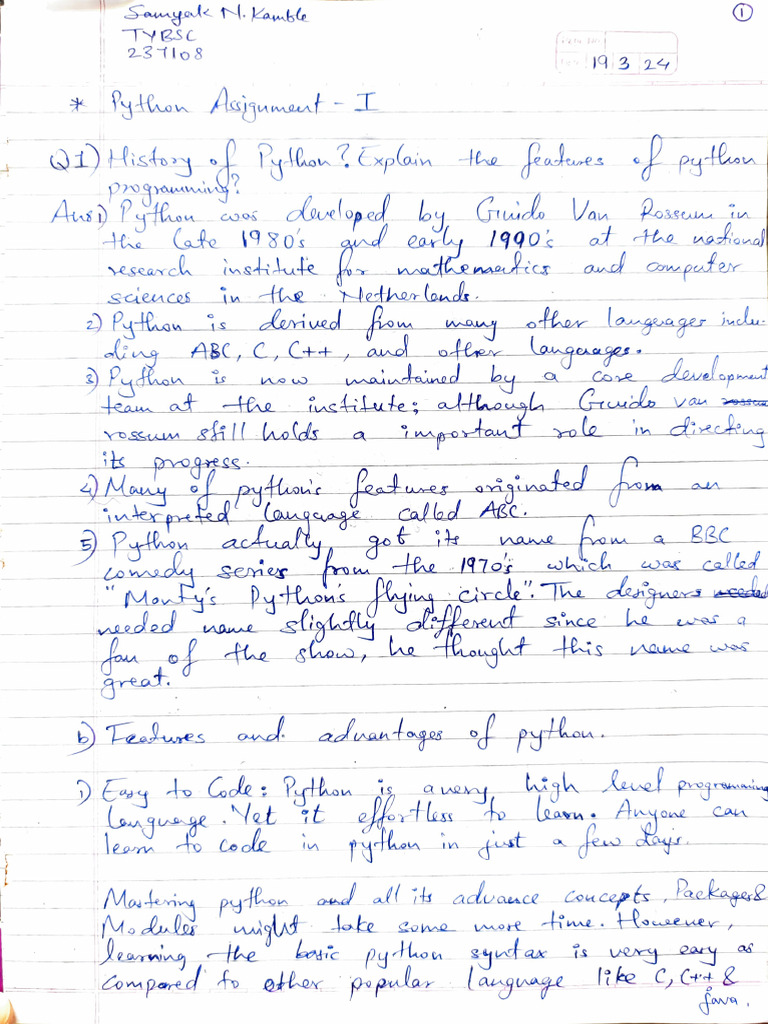 Samyak N. Kamble
TYBSC
237108
1
19 3 24
* Python Assignment - I
Q1) History of Python? Explain the features of python
programming?
Ans 1) Python was developed by Guido Van Rossum in
the late 1980's and early 1990's at the national
research institute for mathematics and computer
sciences in the Netherlands.
2) Python is derived from many other languages inclu-
ding ABC, C, C++, and other languages.
3) Python is now maintained by a core development
team at the institute; although Guido van rossum
rossum still holds a important role in directing
its progress.
4) Many of python's features originated from an
interpreted language called ABC.
5) Python actually got its name from a BBC
comedy series from the 1970's which was called
"Monty's Python's flying circle". The designers needed
needed name slightly different since he was a
fan of the show, he thought this name was
great.
b) Features and advantages of python.
1) Easy to Code: Python is a very high level programming
language. Yet it effortless to learn. Anyone can
learn to code in python in just a few days.
Mastering python and all its advance concepts, Packages &
Modules might take some more time. However,
learning the basic python syntax is very easy as
compared to other popular language like C, C++ &
Java.